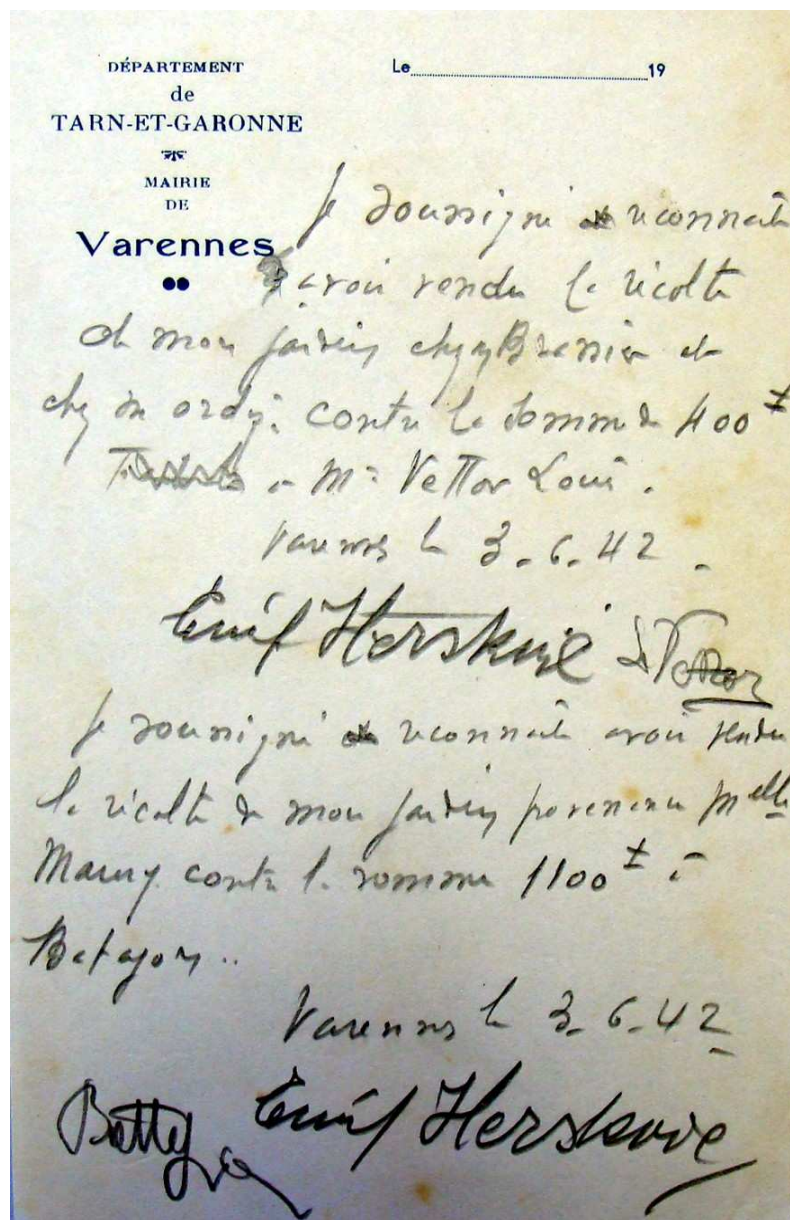 DÉPARTEMENT
de
TARN-ET-GARONNE
MAIRIE
DE
Varennes
Le 19
Je soussigné reconnait
avoir vendu la récolte
de mon jardin chez Bressier et
chez contre la somme de 400 F
à Mr Vettor Louis.
Varennes le 3.6.42.
Emil Herskovic L Vettor
Je soussigné reconnait avoir vendu
la récolte de mon jardin Melle
Maury contre la somme 1100 F à
Varennes le 3.6.42
Betty Emil Herskovic